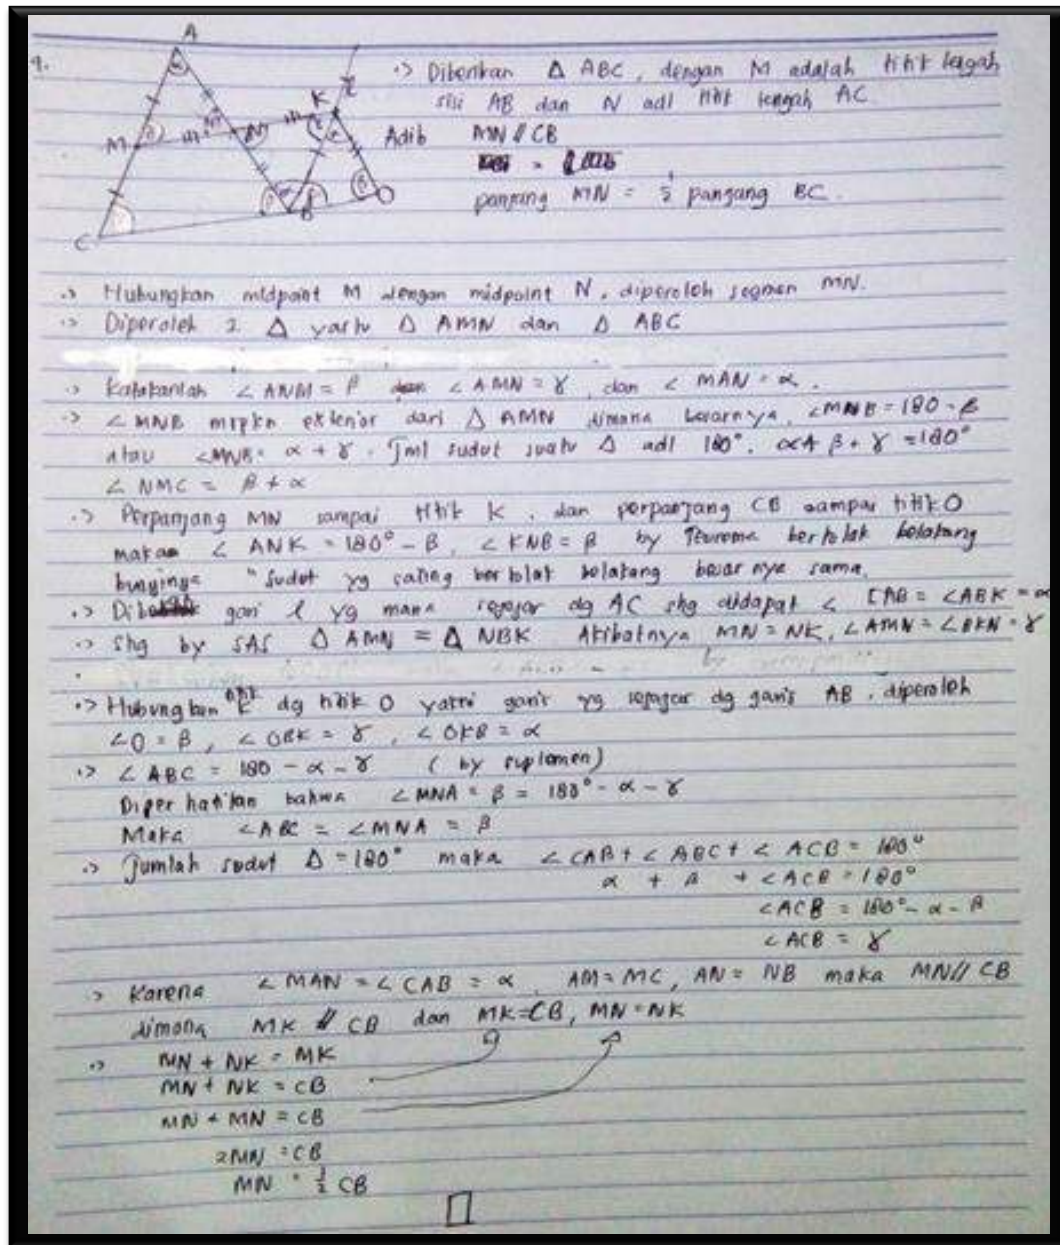 9.
A
K
l
M
m
N
m
B
O
C
•> Diberikan Δ ABC, dengan M adalah titik tengah
sisi AB dan N adl titik tengah AC
Adib MN // CB
panjang MN = 1/2 pangang BC.
•> Hubungkan midpoint M dengan midpoint N, diperoleh segmen MN.
•> Diperoleh 2 Δ yaitu Δ AMN dan Δ ABC
•> Katakanlah ∠ ANM = β dan ∠ AMN = γ, dan ∠ MAN = α.
•> ∠ MNB mrpkn eksterior dari Δ AMN dimana besarnya, ∠MNB = 180 - β
atau ∠MNB = α + γ. Jml sudut suatu Δ adl 180°. α+ β + γ = 180°
∠ NMC = β + α
•> Perpanjang MN sampai titik K, dan perpanjang CB sampai titik O
maka ∠ ANK = 180° - β, ∠ KNB = β by Teorema bertolak belakang
bunyinya "sudut yg saling bertolak belakang besarnya sama.
•> garis l yg mana sejajar dg AC shg didapat ∠ CAB = ∠ABK = α
•> Shg by SAS Δ AMN ≅ Δ NBK Akibatnya MN = NK, ∠AMN = ∠BKN = γ
•> Hubungkan titik K dg titik O yakni garis yg sejajar dg garis AB, diperoleh
∠O = β, ∠ OBK = γ, ∠ OKB = α
•> ∠ ABC = 180 - α - γ (by suplemen)
Diperhatikan bahwa ∠MNA = β = 180° - α - γ
Maka ∠ABC = ∠MNA = β
•> Jumlah sudut Δ = 180° maka ∠ CAB + ∠ ABC + ∠ ACB = 180°
α + β + ∠ACB = 180°
∠ACB = 180° - α - β
∠ACB = γ
•> Karena ∠ MAN = ∠ CAB = α, AM = MC, AN = NB maka MN // CB
dimana MK // CB dan MK = CB, MN = NK
•> MN + NK = MK
MN + NK = CB
MN + MN = CB
2MN = CB
MN = 1/2 CB